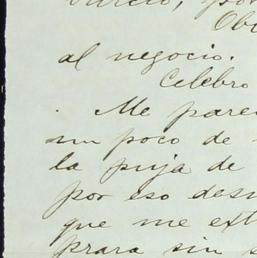 al negocio.
Celebro
. Me pare
un poco de
la puja de
por eso des
que me ext
prara sin s